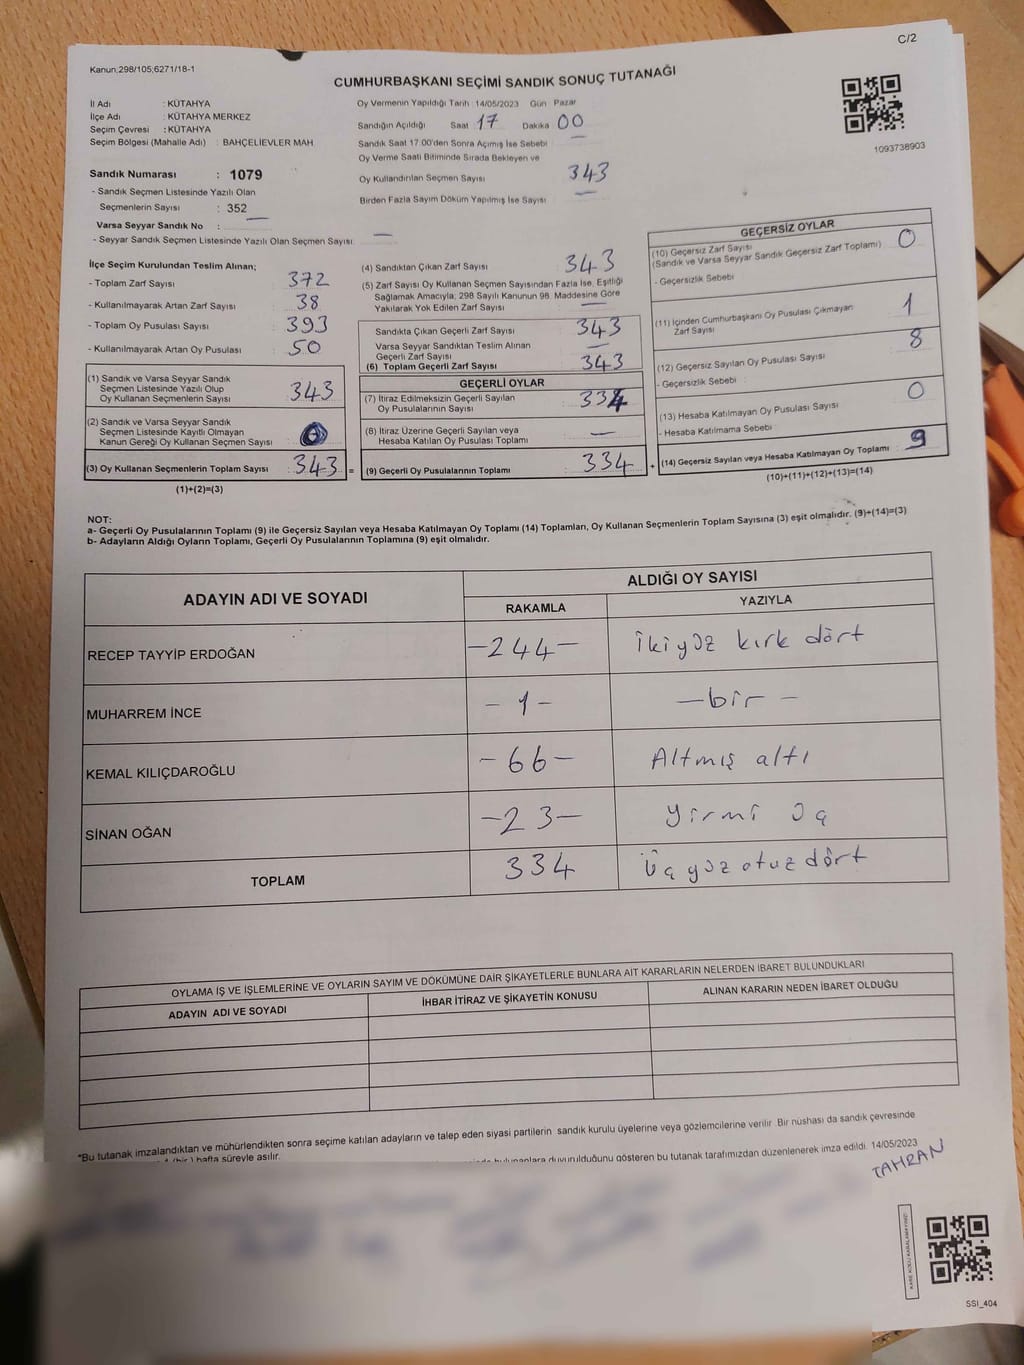 C/2
Kanun;298/105;6271/18-1
CUMHURBAŞKANI SEÇİMİ SANDIK SONUÇ TUTANAĞI
İl Adı : KÜTAHYA
İlçe Adı : KÜTAHYA MERKEZ
Seçim Çevresi : KÜTAHYA
Seçim Bölgesi (Mahalle Adı) : BAHÇELİEVLER MAH.
Sandık Numarası : 1079
- Sandık Seçmen Listesinde Yazılı Olan
Seçmenlerin Sayısı : 352
Varsa Seyyar Sandık No : —
- Seyyar Sandık Seçmen Listesinde Yazılı Olan Seçmen Sayısı: —
Oy Vermenin Yapıldığı Tarih : 14/05/2023 Gün : Pazar
Sandığın Açıldığı Saat 17 Dakika 00
Sandık Saat 17.00'den Sonra Açımış İse Sebebi —
Oy Verme Saati Bitiminde Sırada Bekleyen ve
Oy Kullandırılan Seçmen Sayısı 343
Birden Fazla Sayım Döküm Yapılmış İse Sayısı —
1093738903
İlçe Seçim Kurulundan Teslim Alınan;
- Toplam Zarf Sayısı : 372
- Kullanılmayarak Artan Zarf Sayısı : 38
- Toplam Oy Pusulası Sayısı : 393
- Kullanılmayarak Artan Oy Pusulası : 50
(1) Sandık ve Varsa Seyyar Sandık
Seçmen Listesinde Yazılı Olup
Oy Kullanan Seçmenlerin Sayısı : 343
(2) Sandık ve Varsa Seyyar Sandık
Seçmen Listesinde Kayıtlı Olmayan
Kanun Gereği Oy Kullanan Seçmen Sayısı : 0
(3) Oy Kullanan Seçmenlerin Toplam Sayısı : 343 =
(1)+(2)=(3)
(4) Sandıktan Çıkan Zarf Sayısı : 343
(5) Zarf Sayısı Oy Kullanan Seçmen Sayısından Fazla İse, Eşitliği
Sağlamak Amacıyla; 298 Sayılı Kanunun 98. Maddesine Göre
Yakılarak Yok Edilen Zarf Sayısı : —
Sandıkta Çıkan Geçerli Zarf Sayısı : 343
Varsa Seyyar Sandıktan Teslim Alınan
Geçerli Zarf Sayısı : —
(6) Toplam Geçerli Zarf Sayısı : 343
GEÇERLİ OYLAR
(7) İtiraz Edilmeksizin Geçerli Sayılan
Oy Pusulalarının Sayısı : 334
(8) İtiraz Üzerine Geçerli Sayılan veya
Hesaba Katılan Oy Pusulası Toplamı : —
(9) Geçerli Oy Pusulalarının Toplamı : 334 +
GEÇERSİZ OYLAR
(10) Geçersiz Zarf Sayısı
(Sandık ve Varsa Seyyar Sandık Geçersiz Zarf Toplamı) : 0
- Geçersizlik Sebebi
(11) İçinden Cumhurbaşkanı Oy Pusulası Çıkmayan
Zarf Sayısı : 1
(12) Geçersiz Sayılan Oy Pusulası Sayısı : 8
- Geçersizlik Sebebi :
(13) Hesaba Katılmayan Oy Pusulası Sayısı : 0
- Hesaba Katılmama Sebebi :
(14) Geçersiz Sayılan veya Hesaba Katılmayan Oy Toplamı : 9
(10)+(11)+(12)+(13)=(14)
NOT:
a- Geçerli Oy Pusulalarının Toplamı (9) ile Geçersiz Sayılan veya Hesaba Katılmayan Oy Toplamı (14) Toplamları, Oy Kullanan Seçmenlerin Toplam Sayısına (3) eşit olmalıdır. (9)+(14)=(3)
b- Adayların Aldığı Oyların Toplamı, Geçerli Oy Pusulalarının Toplamına (9) eşit olmalıdır.
ADAYIN ADI VE SOYADI
ALDIĞI OY SAYISI
RAKAMLA YAZIYLA
RECEP TAYYİP ERDOĞAN -244- İkiyüz kırk dört
MUHARREM İNCE -1- -bir-
KEMAL KILIÇDAROĞLU -66- Altmış altı
SİNAN OĞAN -23- yirmi üç
TOPLAM 334 Üçyüz otuz dört
OYLAMA İŞ VE İŞLEMLERİNE VE OYLARIN SAYIM VE DÖKÜMÜNE DAİR ŞİKAYETLERLE BUNLARA AİT KARARLARIN NELERDEN İBARET BULUNDUKLARI
ADAYIN ADI VE SOYADI İHBAR İTİRAZ VE ŞİKAYETİN KONUSU ALINAN KARARIN NEDEN İBARET OLDUĞU
*Bu tutanak imzalandıktan ve mühürlendikten sonra seçime katılan adayların ve talep eden siyasi partilerin sandık kurulu üyelerine veya gözlemcilerine verilir. Bir nüshası da sandık çevresinde
1 (bir) hafta süreyle asılır. bulunanlara duyurulduğunu gösteren bu tutanak tarafımızdan düzenlenerek imza edildi. 14/05/2023
TAHRAN
SSİ_404